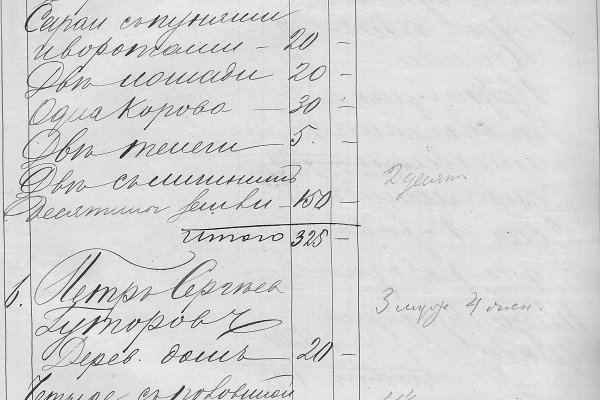 Сараи съ пунями
и воротами — 20 —
Двѣ лошади 20 —
Одна корова — 30 —
Двѣ телеги 5. —
Двѣ съ
Десятины земли — 150 —
2 десят
Итого 325 —
6. Петръ Сергѣев
Гуторовъ
3 муж 4 жен.
Дерев. домъ — 20 —
Четыре съ половиной